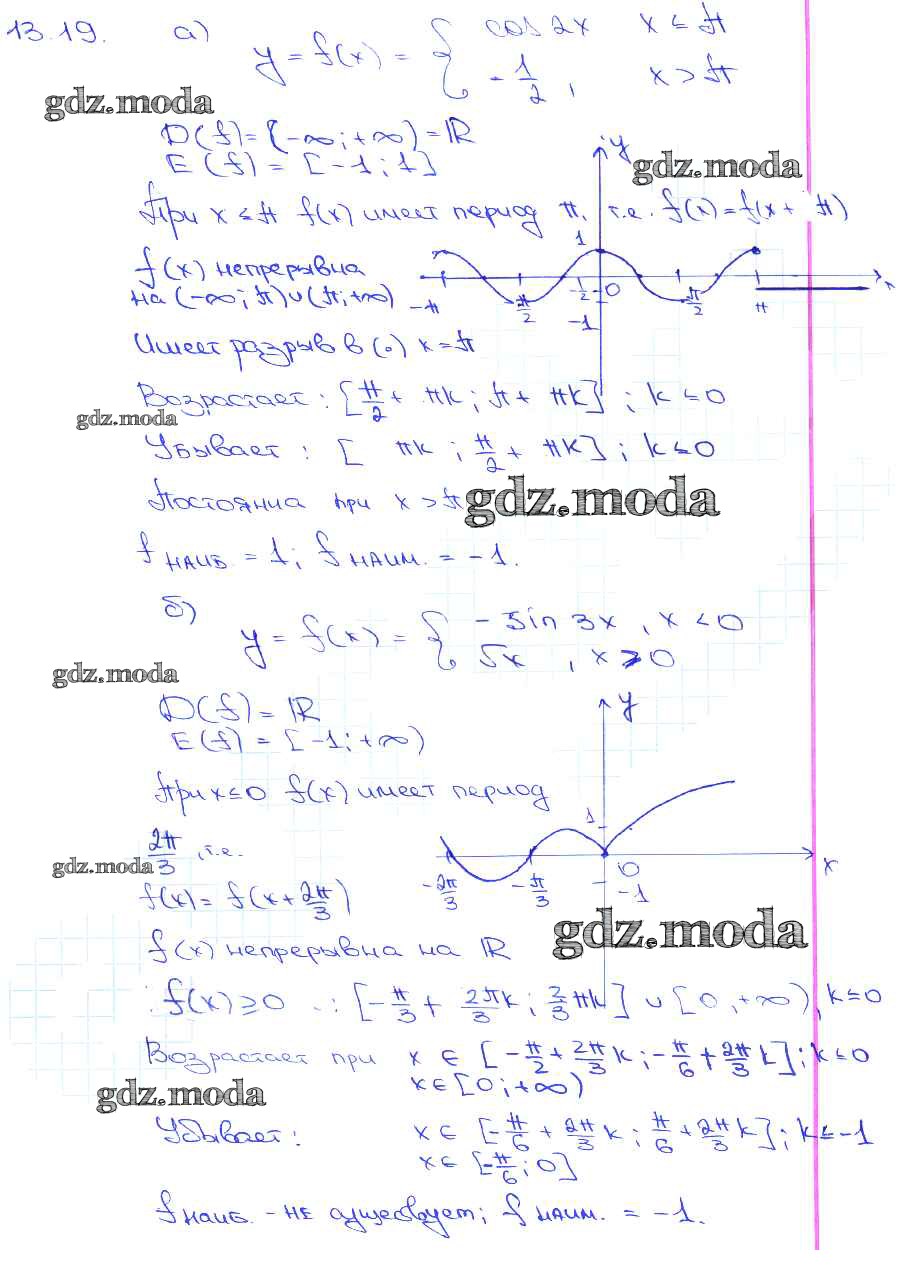 13.19. а) y = f(x) = { cos 2x x ≤ π
- 1/2, x > π
gdz.moda
D(f) = (-∞; +∞) = ℝ
E(f) = [-1; 1]
y
gdz.moda
При x ≤ π f(x) имеет период π, т.е. f(x) = f(x + π)
1
f(x) непрерывна
на (-∞; π) ∪ (π; +∞)
-π -π/2 -1/2 0 π/2 π x
-1
Имеет разрыв в (·) x = π
Возрастает: [π/2 + πk; π + πk]; k ≤ 0
gdz.moda
Убывает: [ πk; π/2 + πk]; k ≤ 0
Постоянна при x > π
gdz.moda
f НАИБ. = 1; f НАИМ. = -1.
б) y = f(x) = { - sin 3x, x < 0
√x, x ≥ 0
gdz.moda
D(f) = ℝ
E(f) = [-1; +∞)
y
При x ≤ 0 f(x) имеет период
1
2π/3, т.е.
gdz.moda
-2π/3 -π/3 0 x
-1
f(x) = f(x + 2π/3)
gdz.moda
f(x) непрерывна на ℝ
f(x) ≥ 0 : [-π/3 + 2πk/3; 2/3 πk] ∪ [0, +∞), k ≤ 0
Возрастает при x ∈ [-π/2 + 2π/3 k; -π/6 + 2π/3 k]; k ≤ 0
x ∈ [0; +∞)
gdz.moda
Убывает: x ∈ [-π/6 + 2π/3 k; π/6 + 2π/3 k]; k ≤ -1
x ∈ [-π/6; 0]
f НАИБ. - НЕ существует; f НАИМ. = -1.